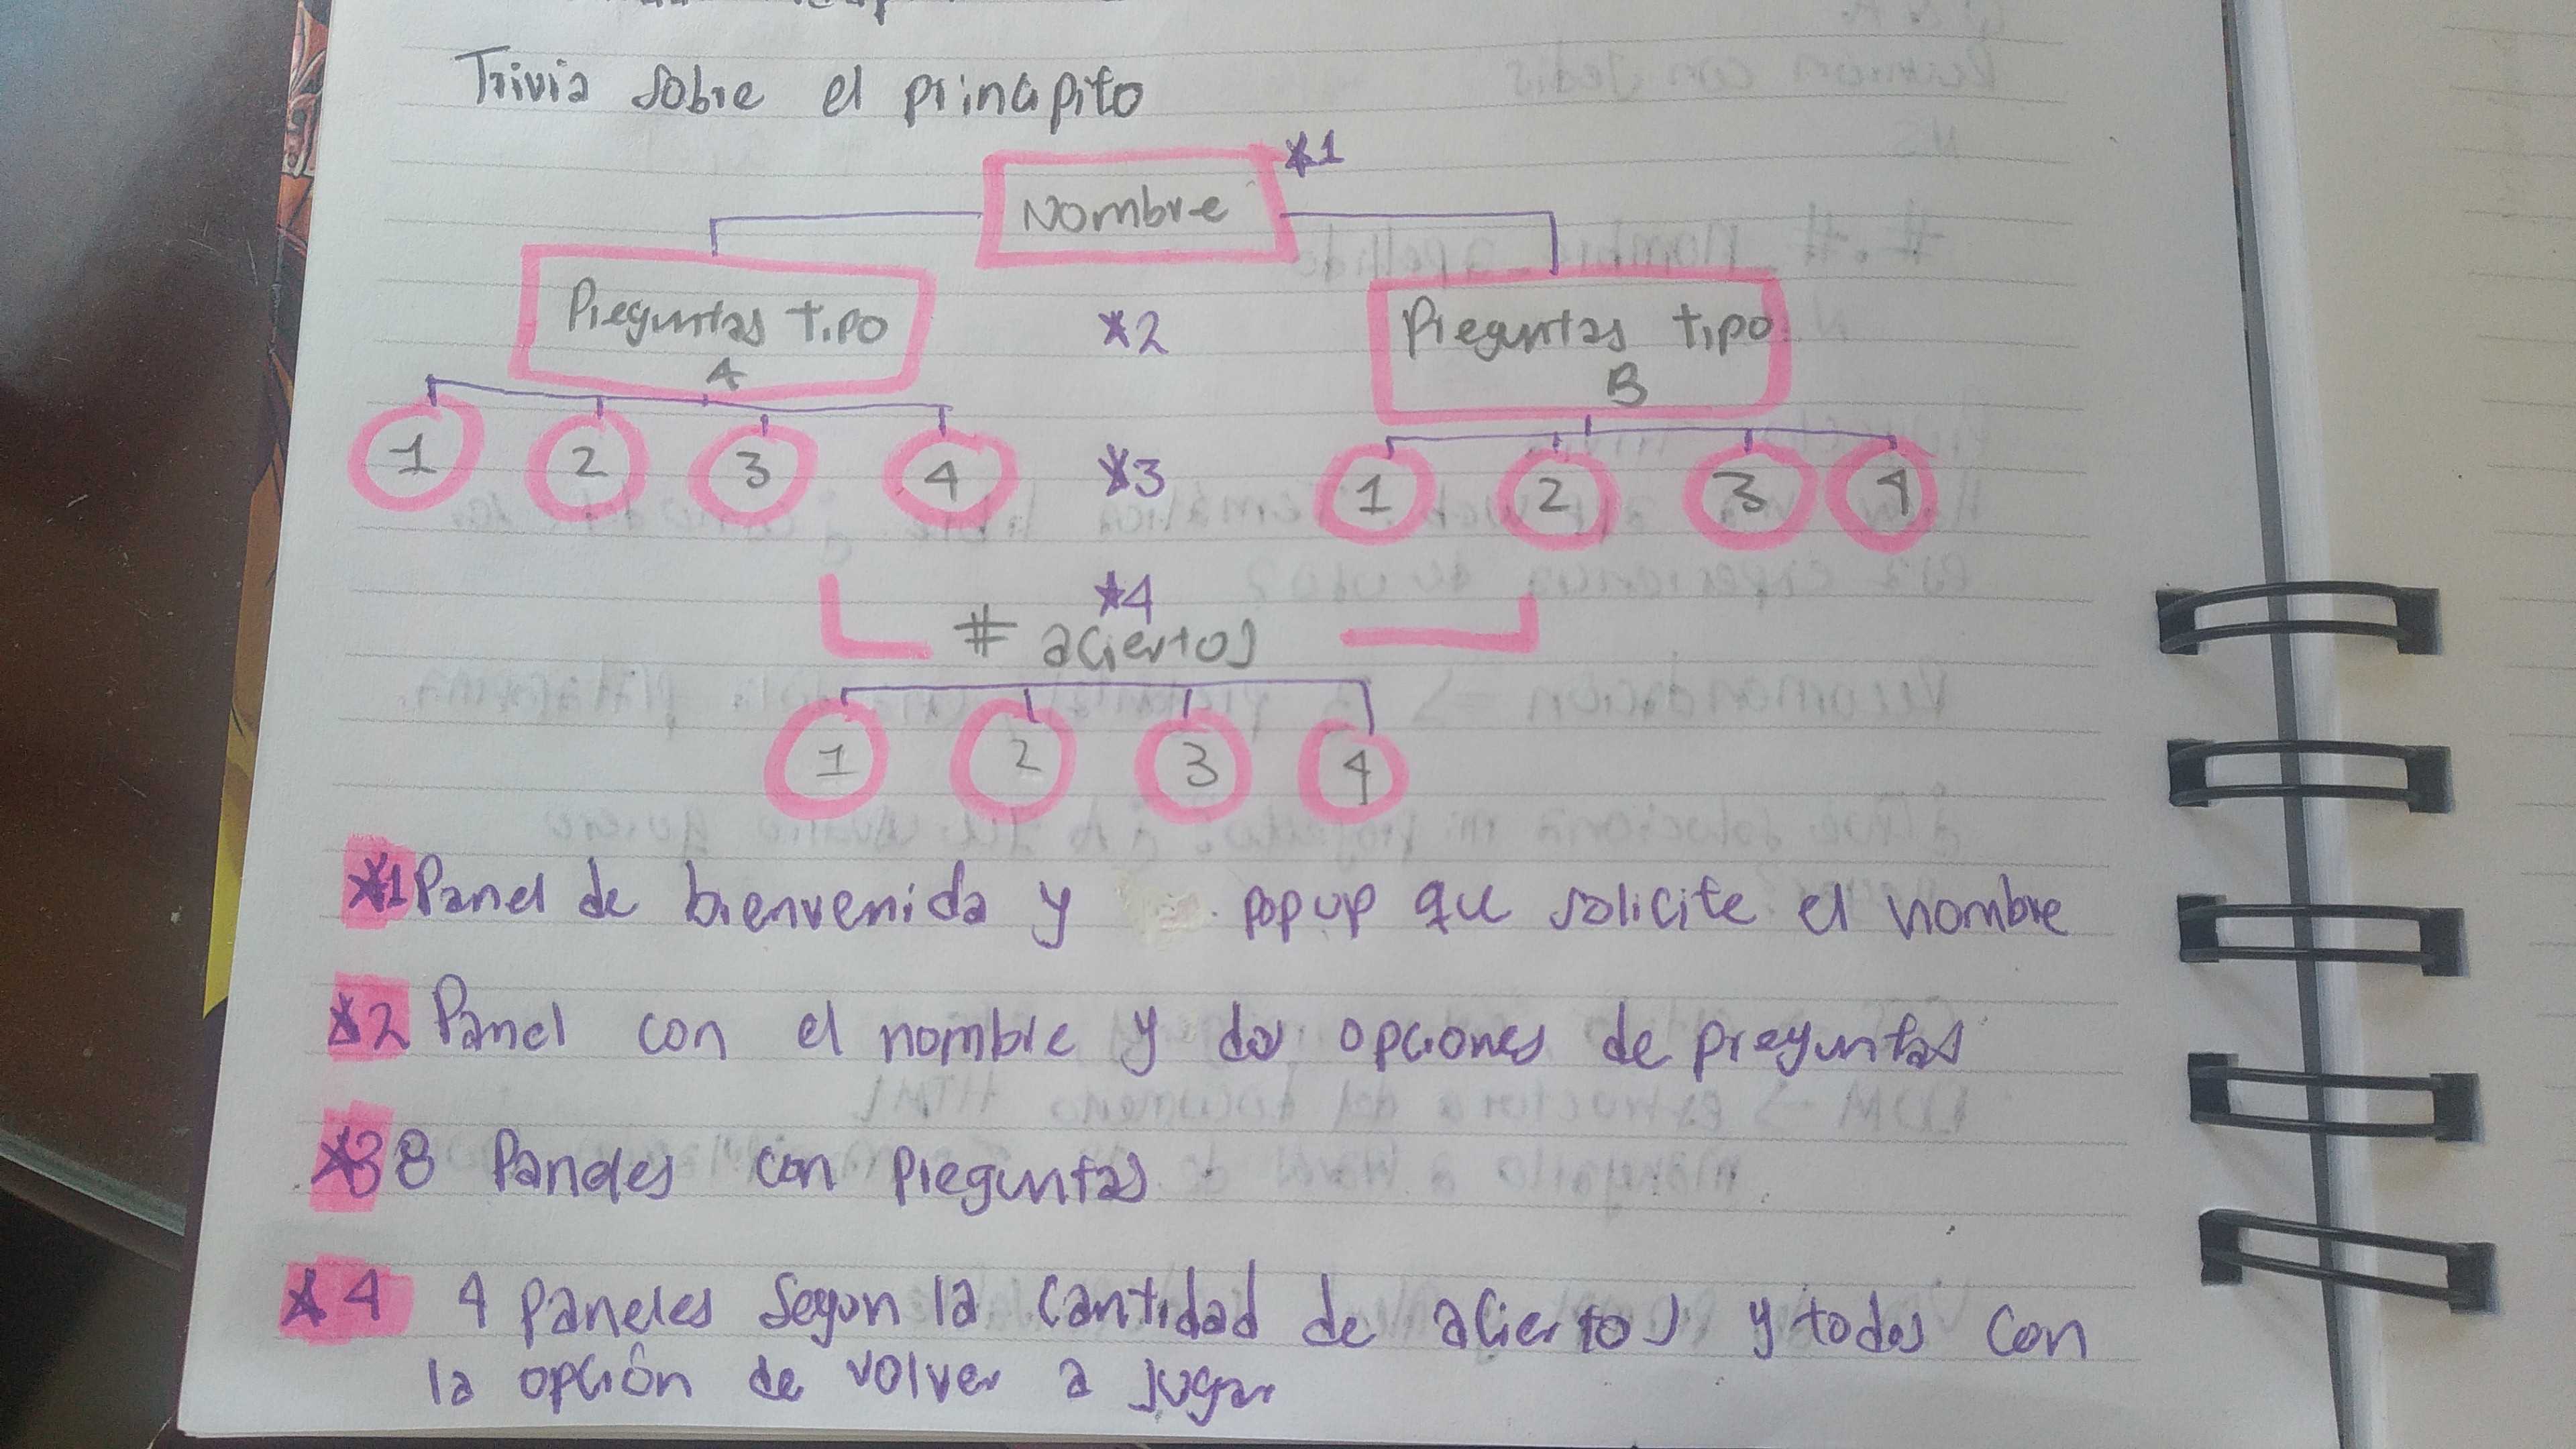 Trivia sobre el principito
Nombre
*1
Preguntas tipo
A
*2
Preguntas tipo
B
1 2 3 4
*3
1 2 3 4
*4
# aciertos
1 2 3 4
*1 Panel de bienvenida y popup que solicite el nombre
*2 Panel con el nombre y dos opciones de preguntas
*3 8 Paneles con preguntas
*4 4 paneles segun la cantidad de aciertos y todos con
la opción de volver a jugar